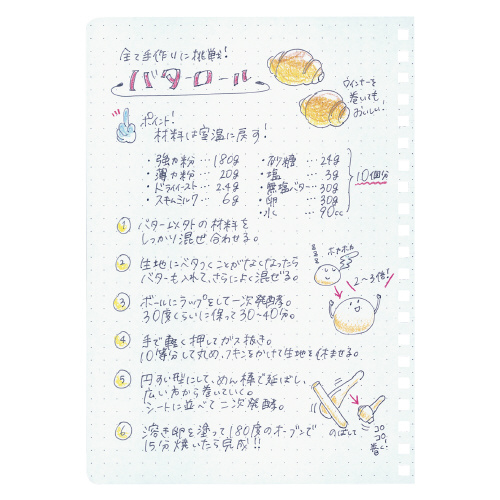 全て手作りに挑戦!
バターロール
ウインナーを
巻いても
おいしい!
ポイント!
材料は室温に戻す!
・強力粉…180g
・薄力粉…20g
・ドライイースト…2.4g
・スキムミルク…6g
・砂糖…24g
・塩…3g
・無塩バター…30g
・卵…30g
・水…90cc
10個分
1 バター以外の材料を
しっかり混ぜ合わせる。
2 生地にベタつくことがなくなったら
バターも入れて、さらによく混ぜる。
ホカホカ
2~3倍!
3 ボールにラップをして一次発酵。
30度くらいに保って30~40分。
4 手で軽く押してガス抜き。
10等分して丸め、フキンをかけて生地を休ませる。
5 円すい型にして、めん棒で延ばし、
広い方から巻いていく。
シートに並べて二次発酵。
6 溶き卵を塗って180度のオーブンで
15分焼いたら完成!!
のばして
コロ
コロ
巻く!